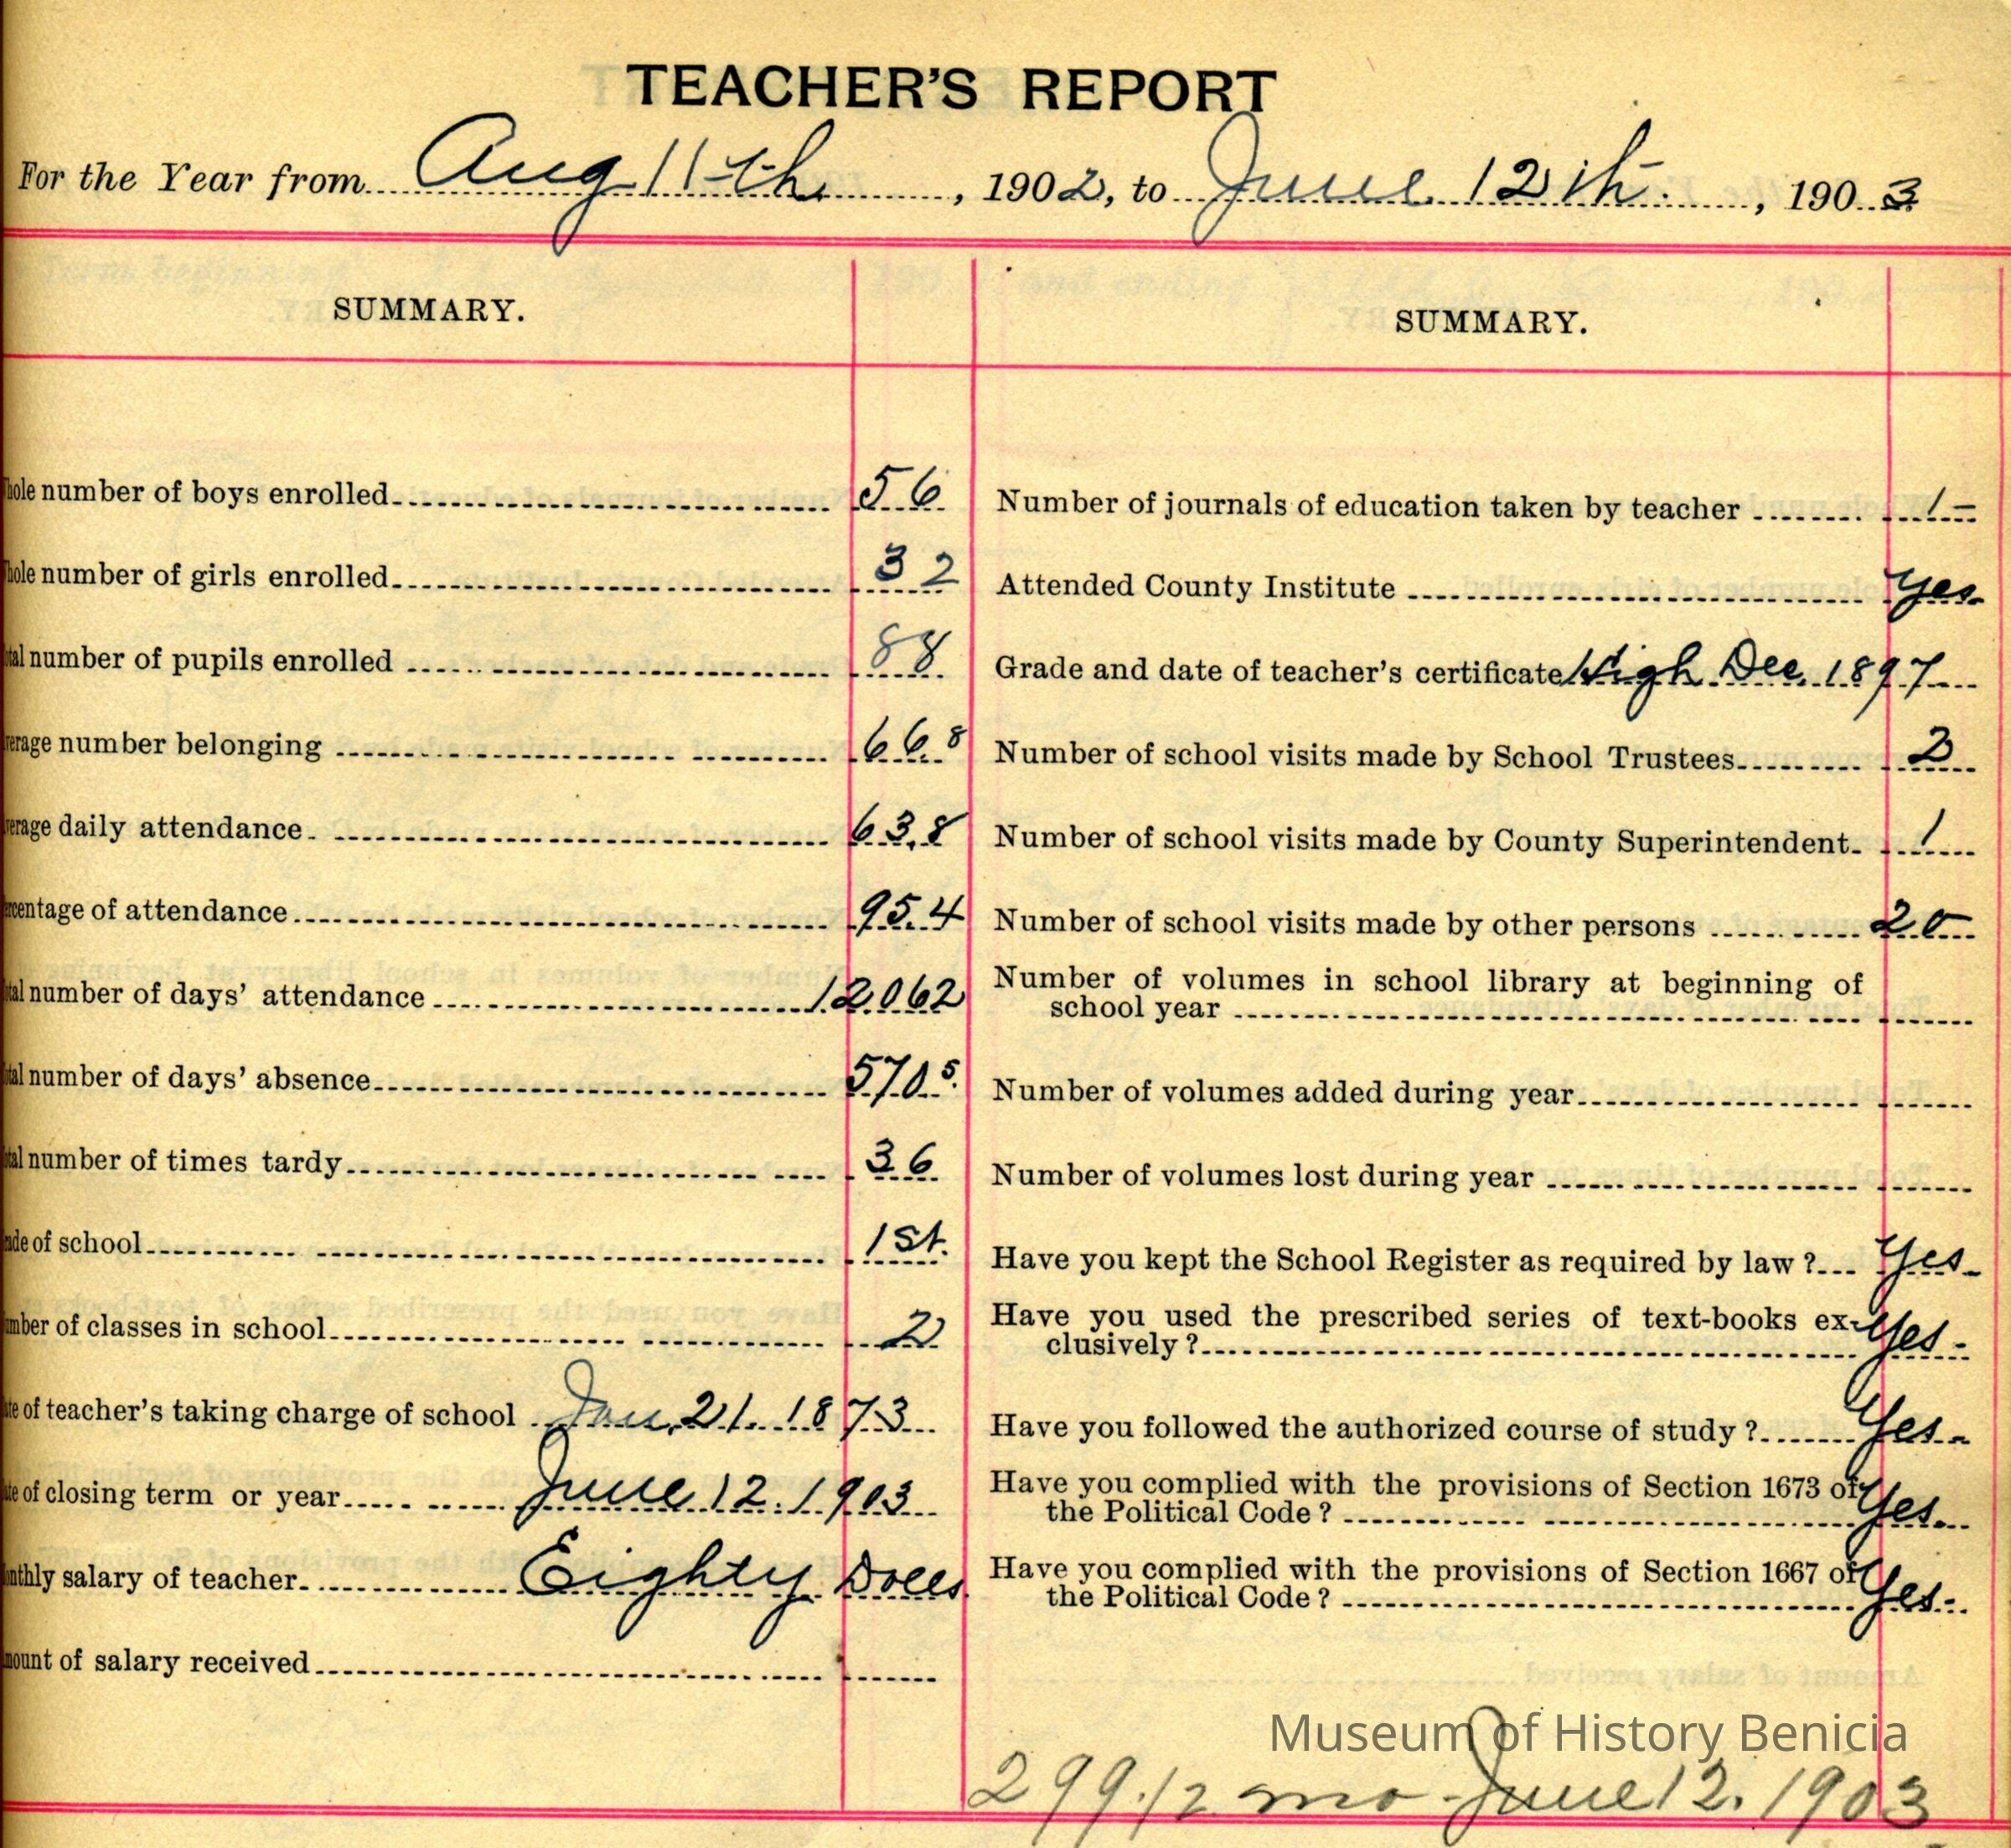 TEACHER'S REPORT
For the Year from Aug 11th, 1902, to June 12th., 1903
SUMMARY.
number of boys enrolled 56
number of girls enrolled 32
number of pupils enrolled 88
number belonging 66.8
daily attendance 63.8
of attendance 95.4
number of days' attendance 12062
number of days' absence 570.5
number of times tardy 36
of school 1st.
of classes in school 2
of teacher's taking charge of school Jan. 21. 1873
of closing term or year June 12. 1903
salary of teacher Eighty Dolls
of salary received
SUMMARY.
Number of journals of education taken by teacher 1
Attended County Institute Yes
Grade and date of teacher's certificate High Dec. 1897
Number of school visits made by School Trustees 2
Number of school visits made by County Superintendent 1
Number of school visits made by other persons 20
Number of volumes in school library at beginning of
school year
Number of volumes added during year
Number of volumes lost during year
Have you kept the School Register as required by law? Yes
Have you used the prescribed series of text-books ex-
clusively? Yes
Have you followed the authorized course of study? Yes
Have you complied with the provisions of Section 1673 of
the Political Code? Yes
Have you complied with the provisions of Section 1667 of
the Political Code? Yes
Museum of History Benicia
299 1/2 mo June 12. 1903